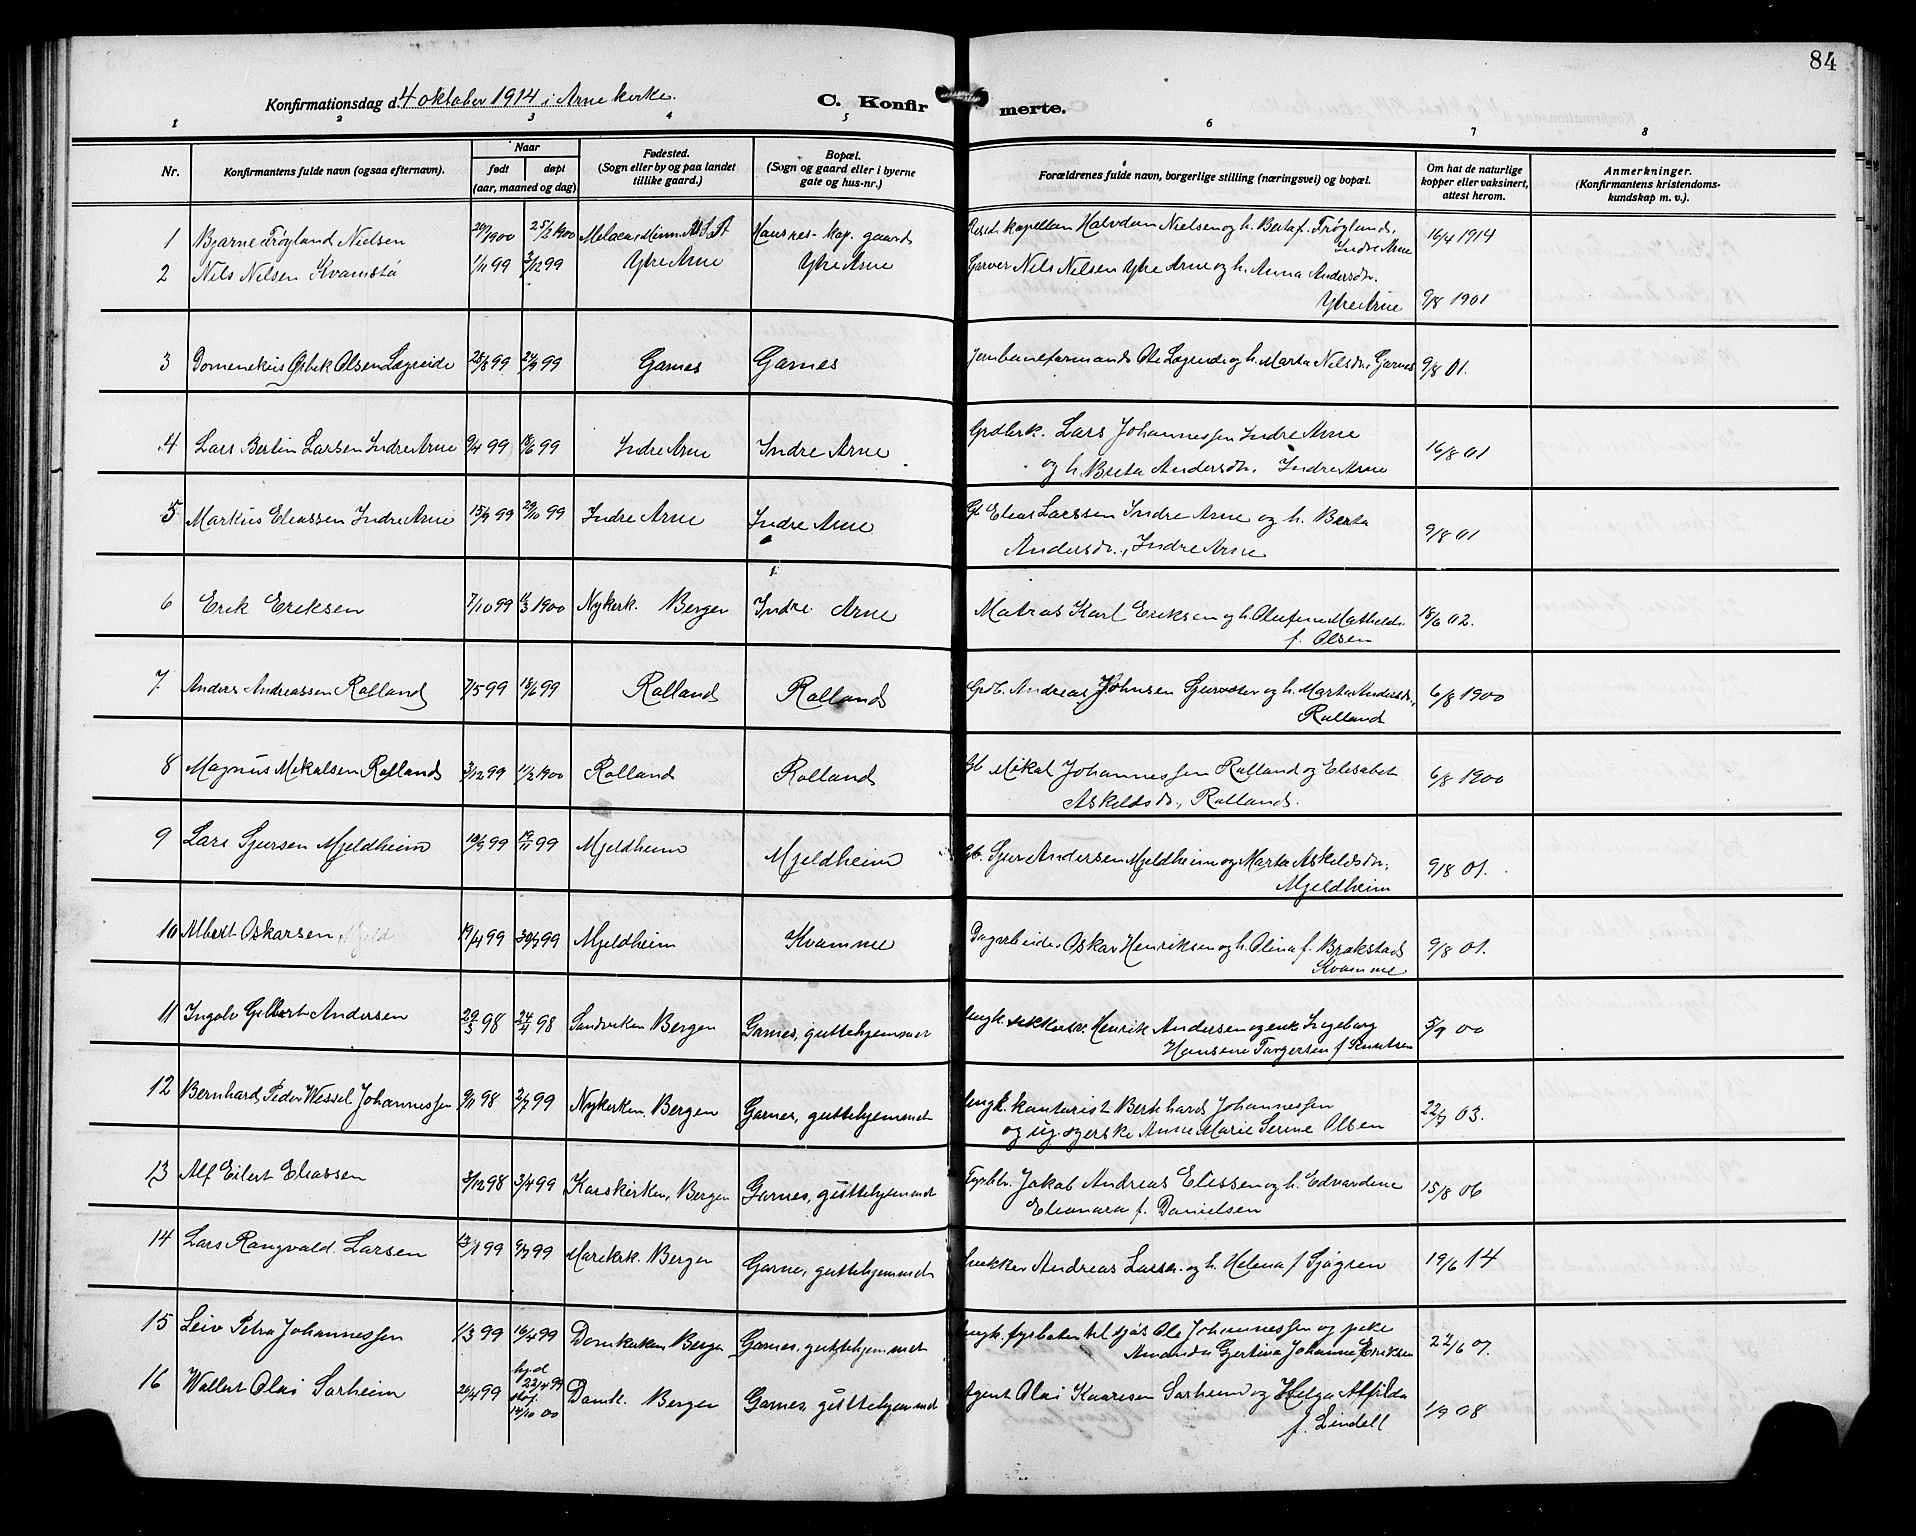 84
Konfirmationsdag d. 4 oktober 1914 i Arne kirke.
C. Konfirmerte.
1 2 3 4 5 6 7 8
Nr. Konfirmantens fulde navn (ogsaa efternavn). Naar født døpt (aar, maaned og dag) Fødested. (Sogn eller by og paa landet tillike gaard.) Bopæl. (Sogn og gaard eller i byerne gate og hus-nr.) Forældrenes fulde navn, borgerlige stilling (næringsvei) og bopæl. Om hat de naturlige kopper eller vaksinert, attest herom. Anmerkninger. (Konfirmantens kristendomskundskap m. v.).
1 Bjarne Frøyland Nielsen 20/1 1900 25/2 1900 Haus res. kap. gaard Resid. kapellan Halvdan Nielsen og h. Berta f. Frøyland, Indre Arne 16/4 1914
2 Nils Nilsen Kvamstø 1/11 99 3/12 99 Ytre Arne Ytre Arne Garver Nils Nilsen Ytre Arne og h. Anna Andersdr. Ytre Arne 9/8 1901
3 Domenekus Olsen Lægreide 28/8 99 24/9 99 Garnes Garnes Jernbaneformand Ole Lægreide og h. Marta Nilsdr., Garnes 9/8 01.
4 Lars Bertin Larsen Indre Arne 9/4 99 18/6 99 Indre Arne Indre Arne Grdbrk. Lars Johannessen Indre Arne
og h. Brita Andersdr. Indre Arne 16/8 01
5 Markus Eliassen Indre Arne 15/9 99 29/10 99 Indre Arne Indre Arne Elias Larssen Indre Arne og h. Berta
Andersdr., Indre Arne 9/8 01
6 Erik Eriksen 7/10 99 11/3 1900 Nykerk. Bergen Indre Arne Matros Karl Eriksen og h. Olufine Mathilde
f. Olsen 18/6 02.
7 Anders Andreassen Rolland 7/5 99 18/6 99 Rolland Rolland Grdb. Andreas Johnsen og h. Marta Andersdr.,
Rolland 6/8 1900
8 Magnus Mikalsen Rolland 3/12 99 11/2 1900 Rolland Rolland Gb Mikal Johannessen Rolland og Elisabet
Askeldsdr., Rolland. 6/8 1900
9 Lars Sjursen Mjeldheim 10/9 99 19/11 99 Mjeldheim Mjeldheim Gb. Sjur Andersen Mjeldheim og Marta Askeldsdr.,
Mjeldheim 9/8 01.
10 Albert Oskarsen Mjeld 19/4 99 30/7 99 Mjeldheim Kvamme Dagarbeider Oskar Henriksen og h. Olina f. Brakstad
Kvamme 9/8 01.
11 Ingolv Gilbert Andersen 29/3 98 24/4 98 Sandviken Bergen Garnes, guttehjemmet Ungk. Henrik Andersen og enk. Ingeborg
Hansine Torgersen f Knutsen 5/9 00
12 Bernhard Peder Wessel Johannessen 9/11 98 2/7 99 Nykerken, Bergen Garnes, guttehjemmet Ungk. kontorist Bernhard Johannessen
og ug. syerske Anne Marie Serine Olsen 22/7 03.
13 Alf Eilert Eliassen 3/12 98 3/4 99 Korskirken, Bergen Garnes, guttehjemmet Fyrbt. Jakob Andreas Eliessen og h. Edvardine
Eleonora f. Danielsen 15/8 06
14 Lars Rangvald Larsen 13/1 99 9/7 99 Mariekrk. Bergen Garne, guttehjemmet Andreas Larsen og h. Helena f Sjøgren 19/6 14
15 Leiv Petra Johannessen 1/3 99 16/4 99 Domkirken Bergen Garnes, guttehjemmet Ungk. fyrbøter til sjøs Ole Johannessen og pike
Amanda Gjertina Johanne Eriksen 22/6 07.
16 Wallert Olai Sorheim 20/4 99 hjd 22/4 99 stf. 14/10 00 Domk. Bergen Garnes, guttehjemmet Agent Olai Kaaresen Sorheim og Helga Alfilda
f. Lindell 1/9 08